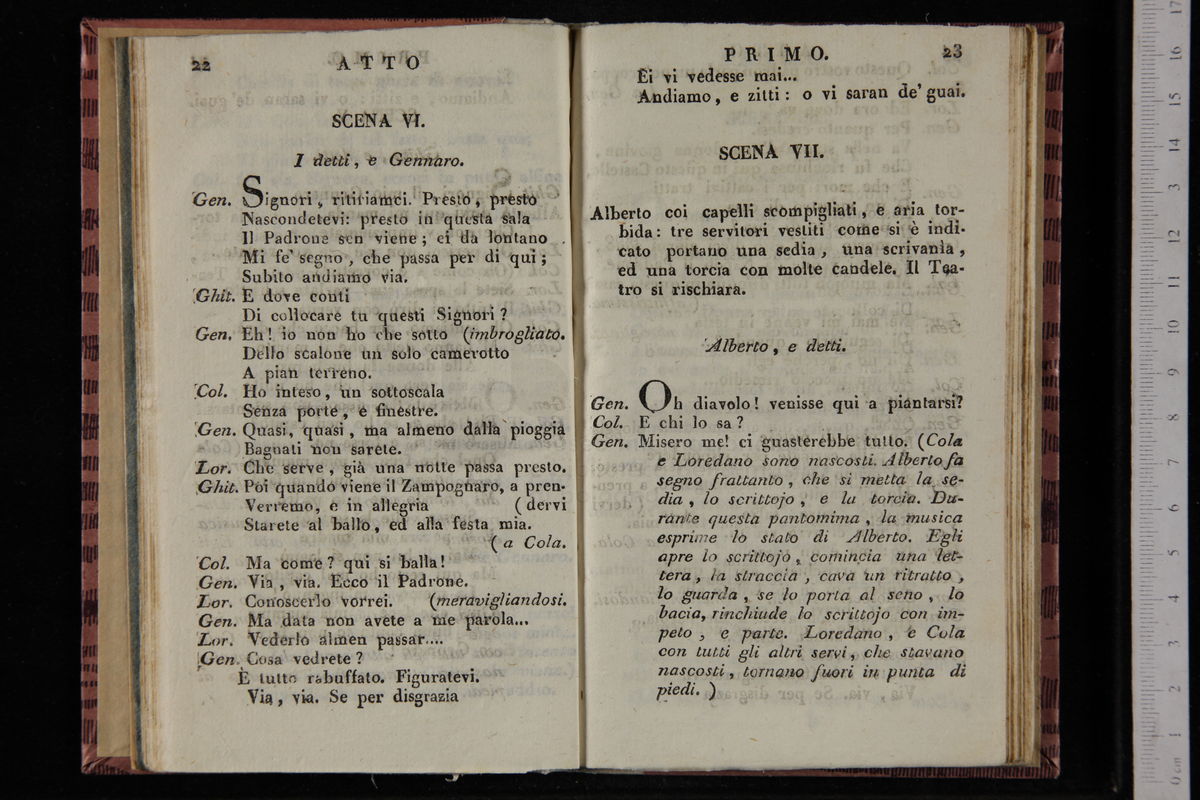 22 ATTO
SCENA VI.
I detti, e Gennaro.
Gen. Signori, ritiriamci. Presto, presto
Nascondetevi: presto in questa sala
Il Padrone sen viene; ei da lontano
Mi fe' segno, che passa per di qui;
Subito andiamo via.
Ghit. E dove conti
Di collocare tu questi Signori?
Gen. Eh! io non ho che sotto (imbrogliato.
Dello scalone un solo camerotto
A pian terreno.
Col. Ho inteso, un sottoscala
Senza porte, e finestre.
Gen. Quasi, quasi, ma almeno dalla pioggia
Bagnati non sarete.
Lor. Che serve, già una notte passa presto.
Ghit. Poi quando viene il Zampognaro, a pren-
Verremo, e in allegria (dervi
Starete al ballo, ed alla festa mia.
(a Cola.
Col. Ma come? qui si balla!
Gen. Via, via. Ecco il Padrone.
Lor. Conoscerlo vorrei. (meravigliandosi.
Gen. Ma data non avete a me parola...
Lor. Vederlo almen passar....
Gen. Cosa vedrete?
È tutto rabuffato. Figuratevi.
Via, via. Se per disgrazia
PRIMO. 23
Ei vi vedesse mai...
Andiamo, e zitti: o vi saran de' guai.
SCENA VII.
Alberto coi capelli scompigliati, e aria tor-
bida: tre servitori vestiti come si è indi-
cato portano una sedia, una scrivania,
ed una torcia con molte candele. Il Tea-
tro si rischiara.
Alberto, e detti.
Gen. Oh diavolo! venisse qui a piantarsi?
Col. E chi lo sa?
Gen. Misero me! ci guasterebbe tutto. (Cola
e Loredano sono nascosti. Alberto fa
segno frattanto, che si metta la se-
dia, lo scrittojo, e la torcia. Du-
rante questa pantomima, la musica
esprime lo stato di Alberto. Egli
apre lo scrittojo, comincia una let-
tera, la straccia, cava un ritratto,
lo guarda, se lo porta al seno, lo
bacia, rinchiude lo scrittojo con im-
peto, e parte. Loredano, e Cola
con tutti gli altri servi, che stavano
nascosti, tornano fuori in punta di
piedi.)